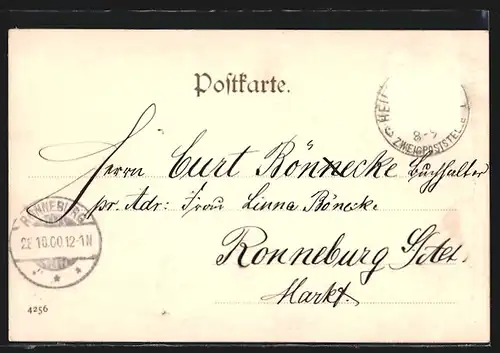 Postkarte.
HEI
8-9
ZWEIGPOSTSTEL
Herrn Curt Bönnecke Buchhalter
pr. Adr: Frau Linna Böneck.
RONNEBURG
28 10.00.12-1N
Ronneburg S/Alt.
Markt.
4256